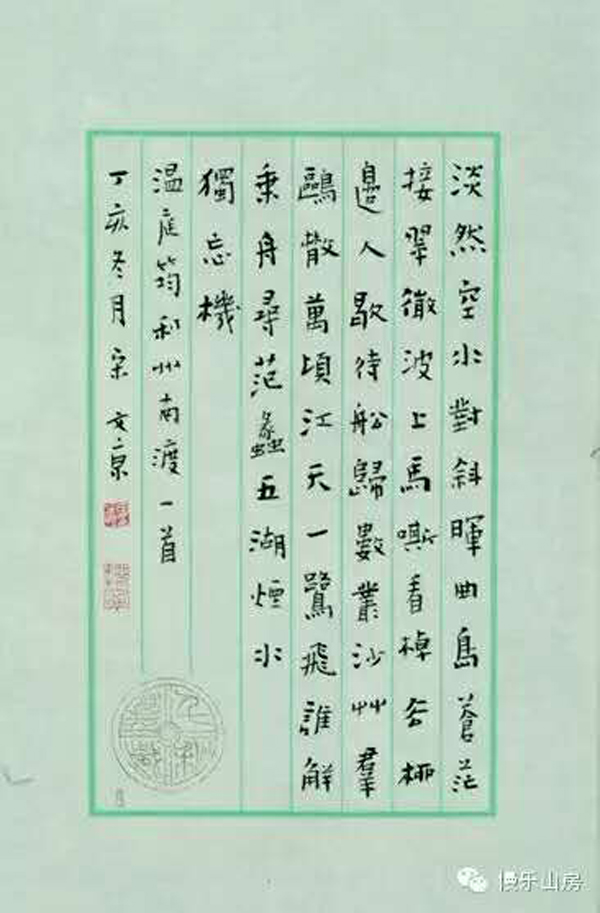 淡然空水對斜暉曲島蒼茫
接翠微波上馬嘶看棹厺柳
邊人歇待舩歸數叢沙艸羣
鷗散萬頃江天一鷺飛誰解
乘舟尋范蠡五湖煙水
獨忘機
温庭筠利州南渡一首
丁亥冬月宋文京
慢乐山房